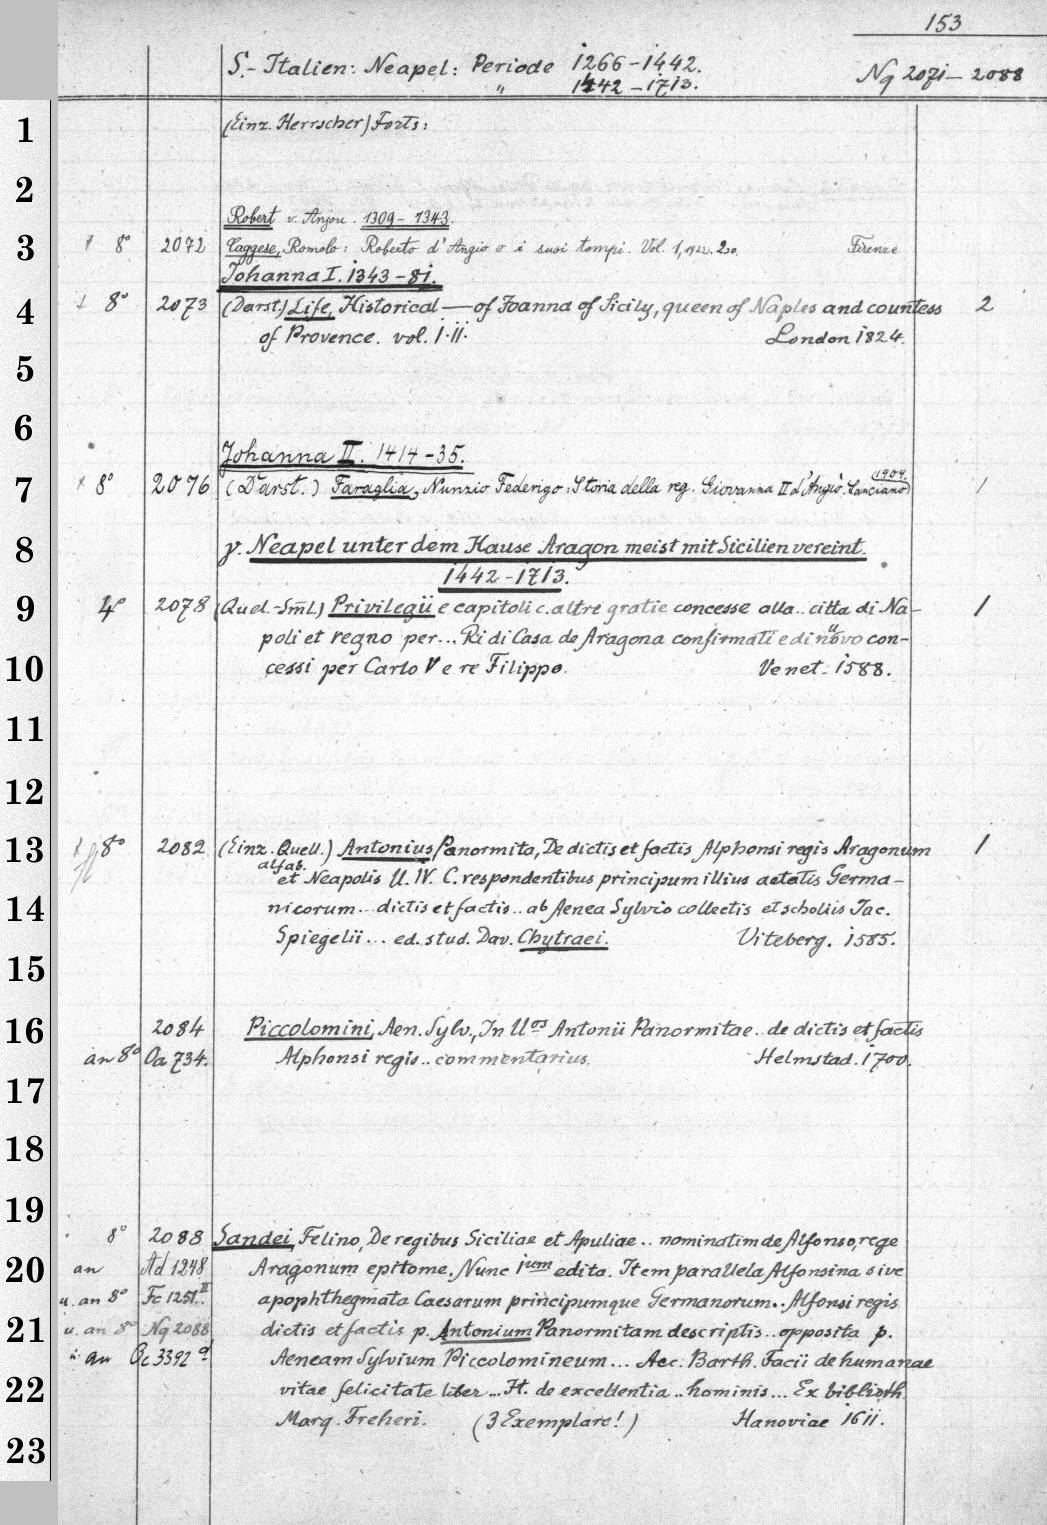 153
S.-Italien: Neapel: Periode 1266-1442.
" 1442-1713.
Nq 2071-2088
1
(Einz. Herrscher) Forts:
2
Robert v. Anjou. 1309-1343.
3 8° 2072 Caggese, Romolo: Roberto d'Angio e i suoi tempi. Vol. 1, 1922. 2 Firenze
Johanna I. 1343-81.
4 8° 2073 (Darst.) Life, Historical — of Joanna of Sicily, queen of Naples and countess 2
of Provence. vol. I.II. London 1824.
5
6
Johanna II. 1414-35.
7 8° 2076 (Darst.) Faraglia, Nunzio Federigo: Storia della reg. Giovanna II d'Angiò. Lanciano 1904. 1
8 γ. Neapel unter dem Hause Aragon meist mit Sicilien vereint.
1442-1713.
9 4° 2078 (Quel.-Sml.) Privilegii e capitoli c. altre gratie concesse alla.. citta di Na- 1
poli et regno per... Ri di Casa de Aragona confirmati e di nuovo con-
10 cessi per Carlo V e re Filippo. Venet. 1588.
11
12
13 8° 2082 (Einz. Quell.) Antonius Panormita, De dictis et factis Alphonsi regis Aragonum 1
alfab.
et Neapolis ll. IV. C. respondentibus principum illius aetatis Germa-
14 nicorum... dictis et factis.. ab Aenea Sylvio collectis et scholiis Jac.
Spiegelii... ed. stud. Dav. Chytraei. Viteberg. 1585.
15
16 2084 Piccolomini, Aen. Sylv., In ll os Antonii Panormitae.. de dictis et factis
an 8° Oa 734. Alphonsi regis.. commentarius. Helmstad. 1700.
17
18
19
8° 2088 Sandei, Felino, De regibus Siciliae et Apuliae.. nominatim de Alfonso, rege
20 an Ad 1248 Aragonum epitome. Nunc 1um edita. Item parallela Alfonsina sive
u. an 8° Fc 1251.II apophthegmata Caesarum principumque Germanorum.. Alfonsi regis
21 u. an 8° Nq 2088 dictis et factis p. Antonium Panormitam descriptis.. opposita p.
u. an Qc 3392 d Aeneam Sylvium Piccolomineum... Acc. Barth. Facii de humanae
22 vitae felicitate liber... It. de excellentia.. hominis... Ex biblioth.
Marq. Freheri. (3 Exemplare!) Hanoviae 1611.
23